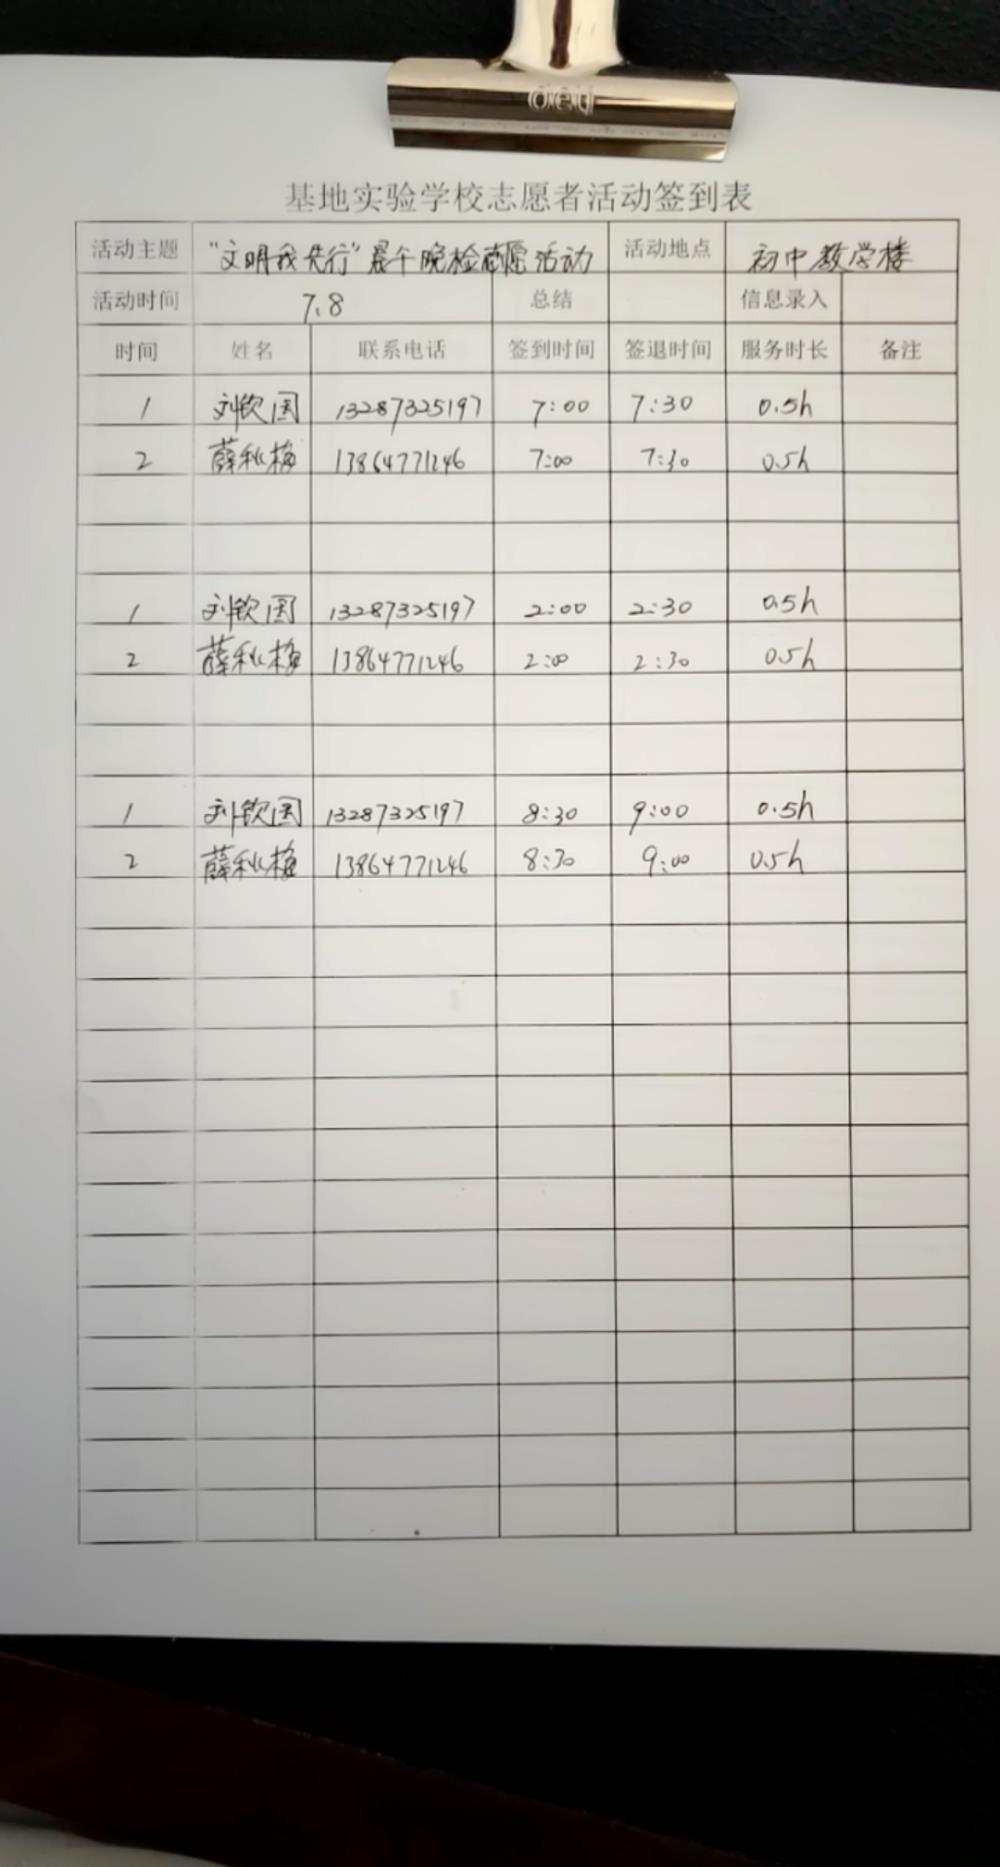 deli
基地实验学校志愿者活动签到表
活动主题 "文明我先行"晨午晚检志愿活动 活动地点 初中教学楼
活动时间 7.8 总结 信息录入
时间 姓名 联系电话 签到时间 签退时间 服务时长 备注
1 刘钦国 13287325197 7:00 7:30 0.5h
2 薛秋梅 13864771246 7:00 7:30 0.5h
1 刘钦国 13287325197 2:00 2:30 0.5h
2 薛秋梅 13864771246 2:00 2:30 0.5h
1 刘钦国 13287325197 8:30 9:00 0.5h
2 薛秋梅 13864771246 8:30 9:00 0.5h